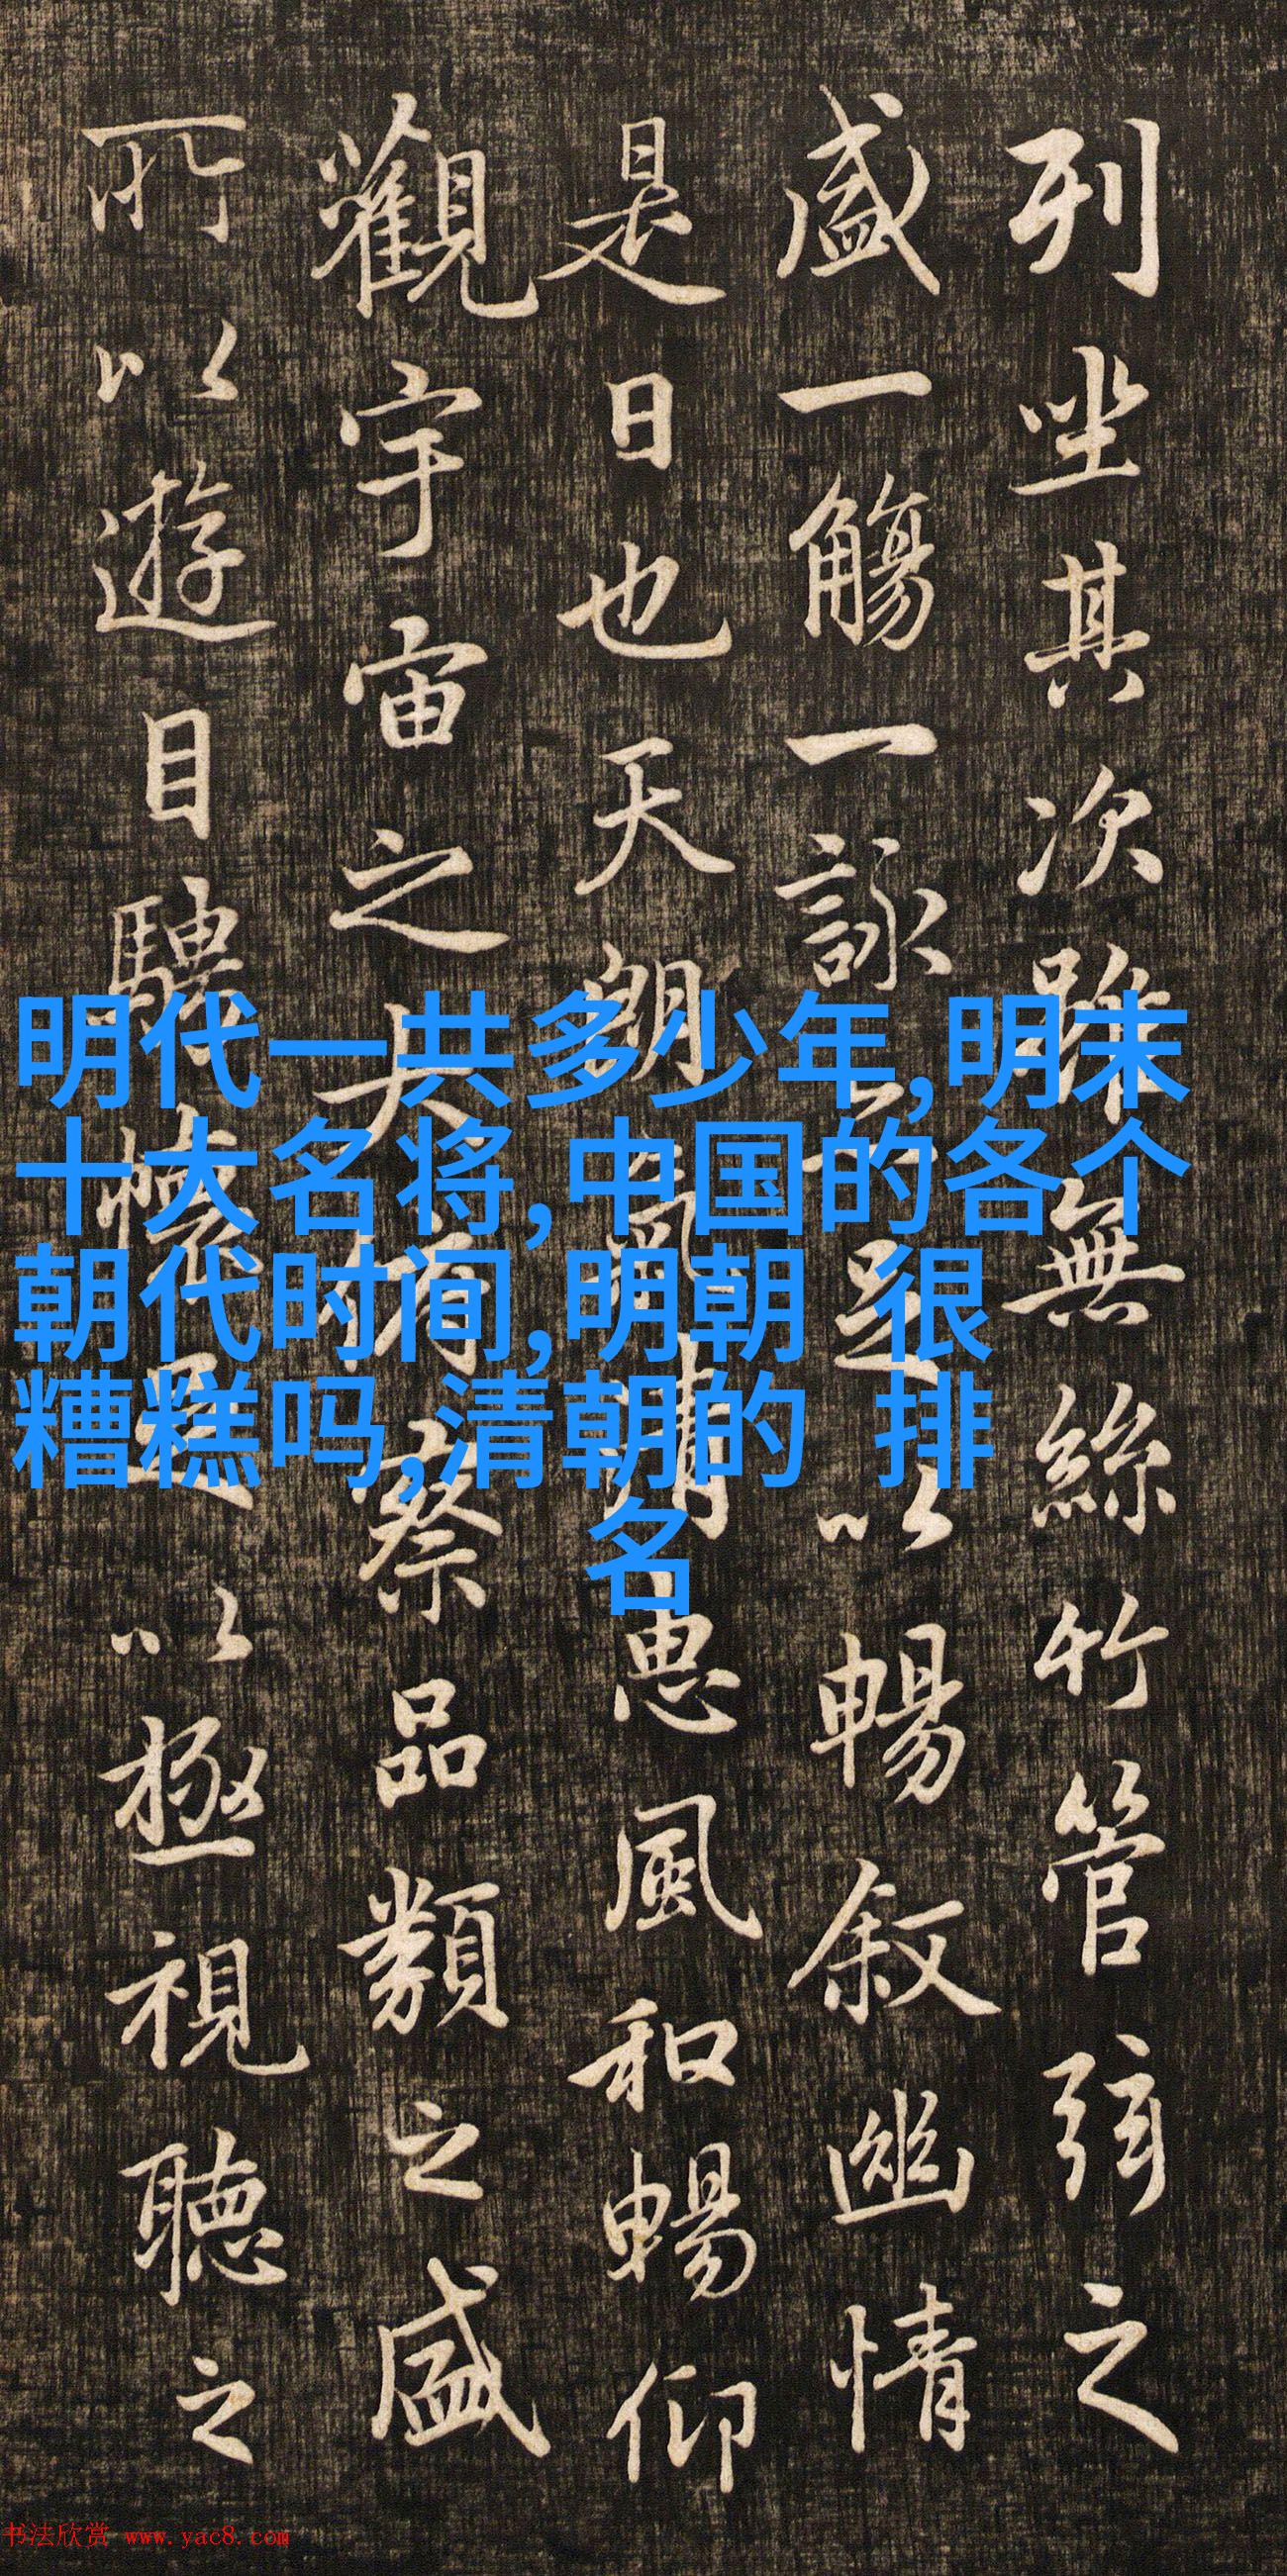 列坐其次雖無絲竹管弦之
盛一觴一詠亦足以暢叙幽情
是日也天朗氣清惠風和暢仰
觀宇宙之大俯察品類之盛
所以遊目騁懷足以極視聽之
明代一共多少年,明末
十大名将,中国的各个
朝代时间,明朝 很
糟糕吗,清朝的 排
名
书法欣赏 www.yac8.com